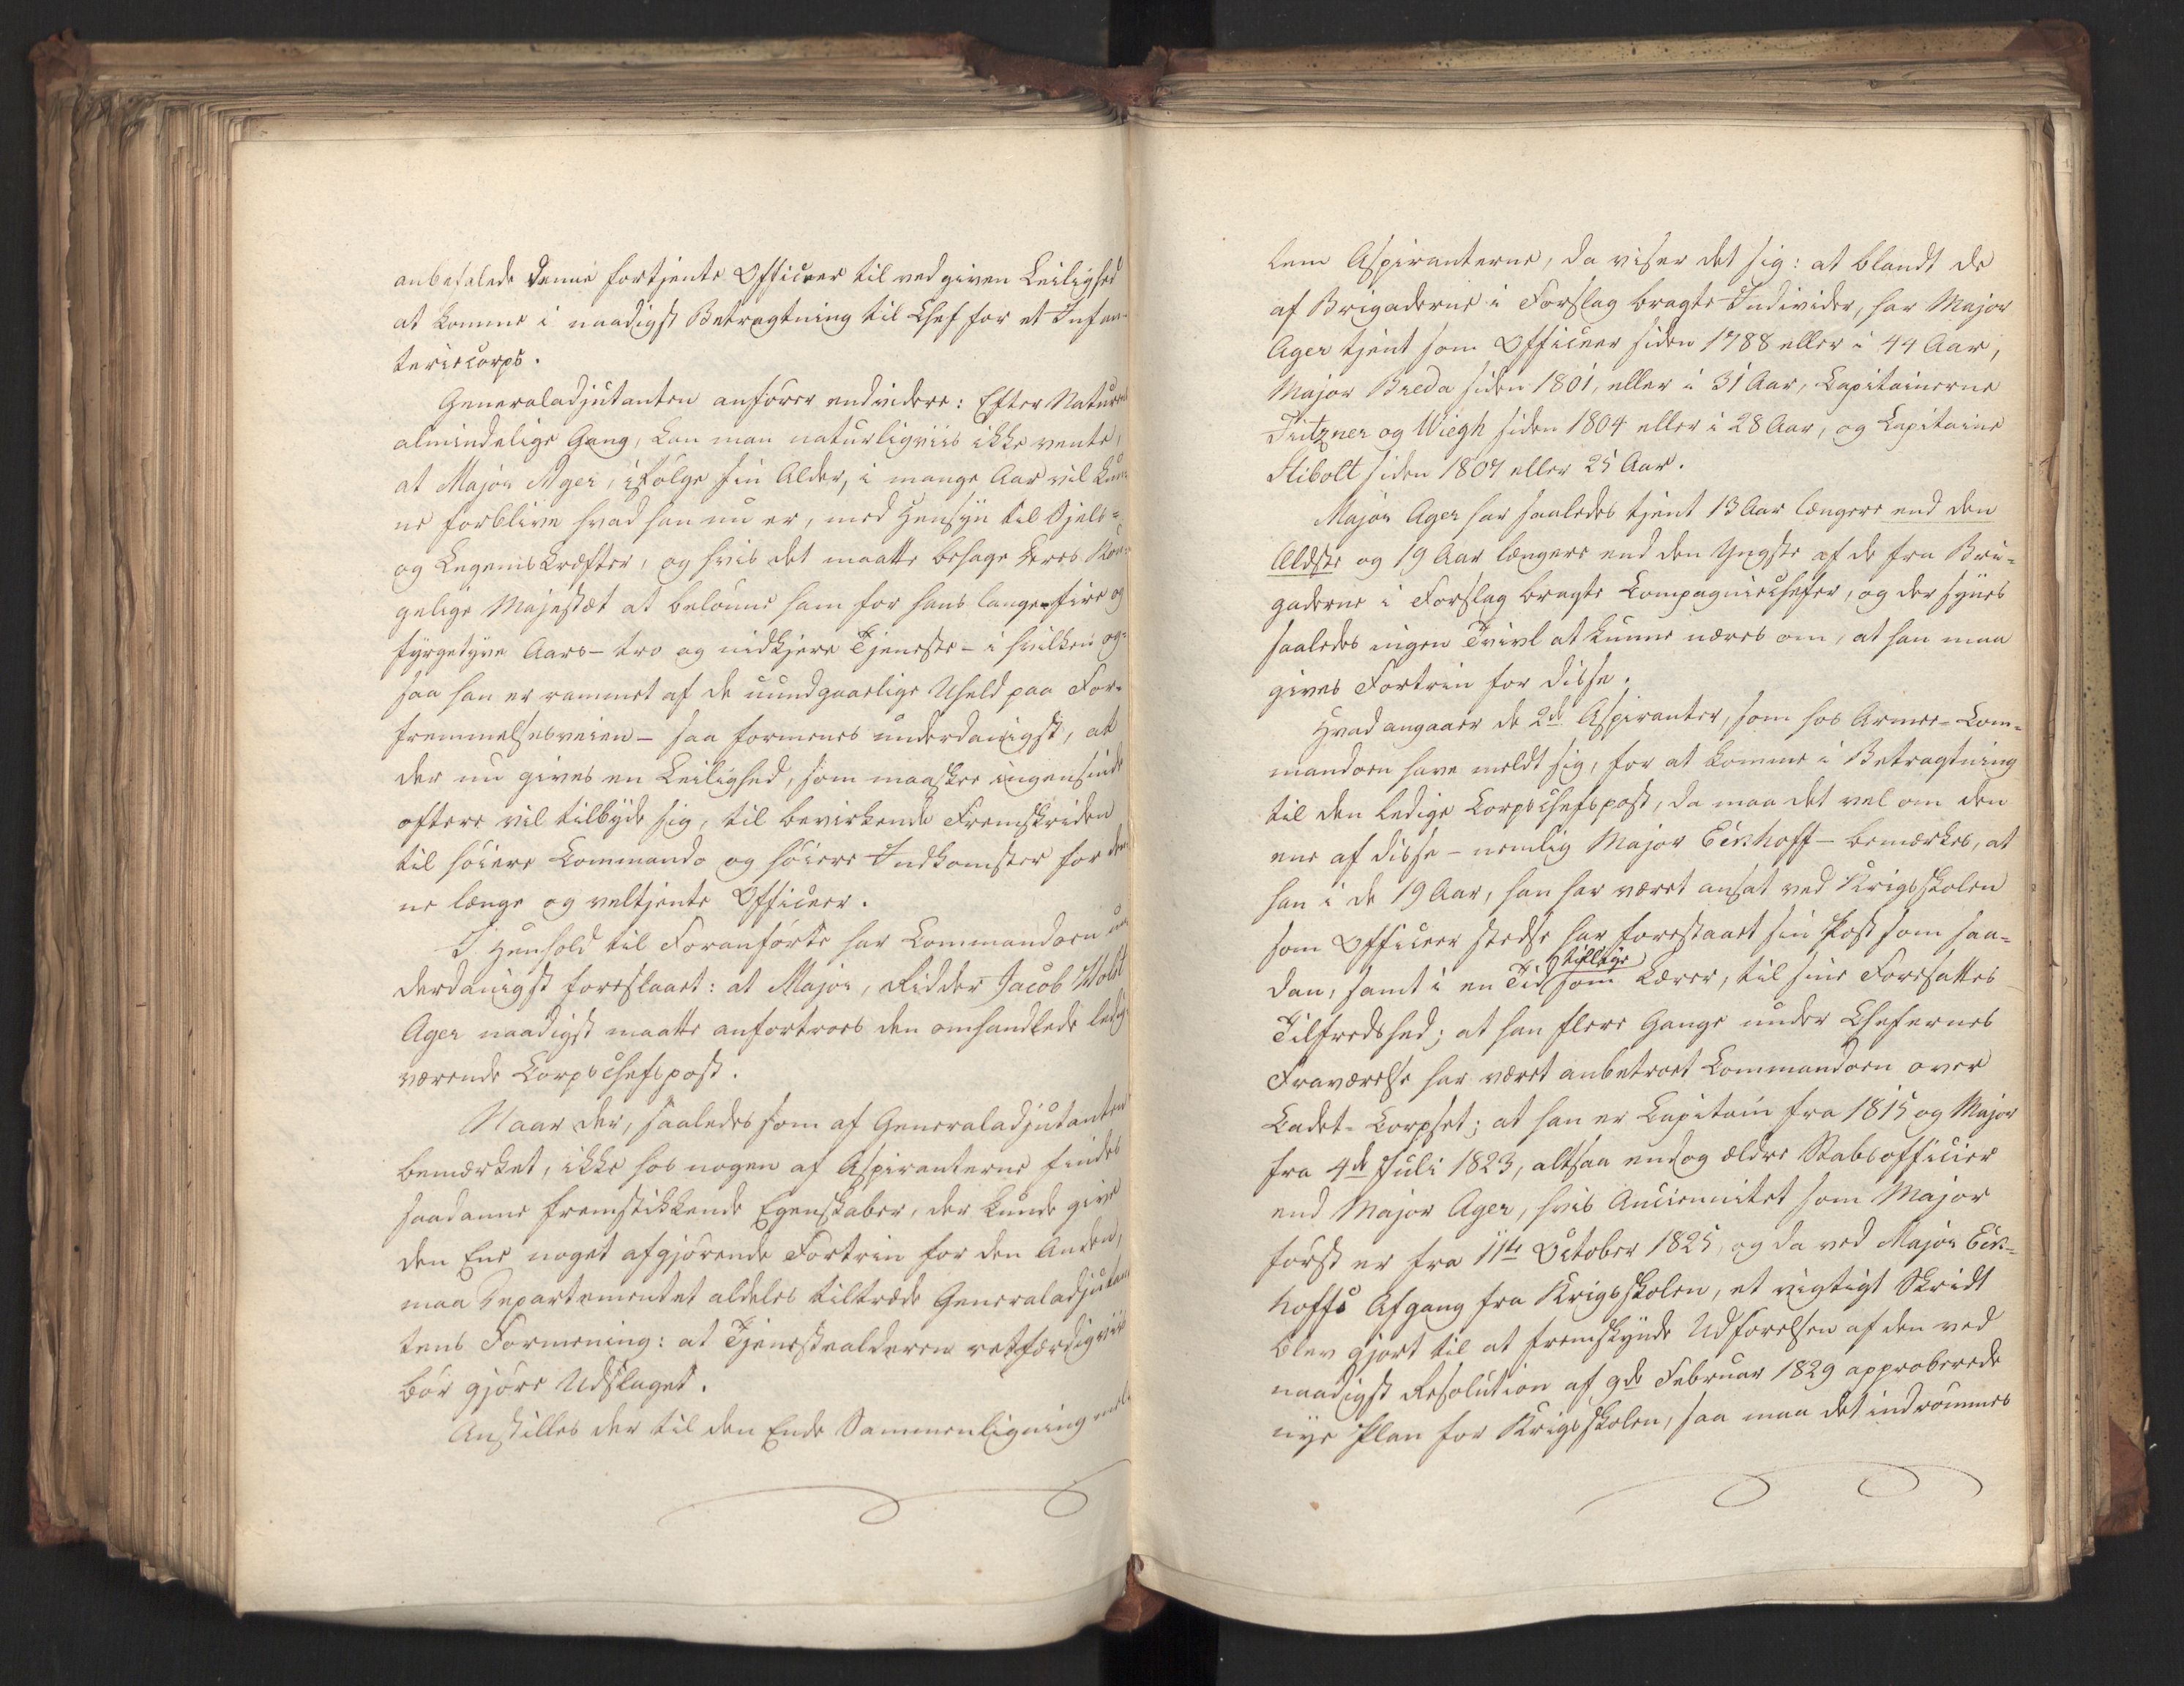 anbefalede denne fortjente Officeer til ved given Leilighed
at komme i naadigst Betragtning til Chef for et Infan-
teriecorps.
Generaladjutanten anfører endvidere: Efter Naturens
almindelige Gang, kan man naturligviis ikke vente,
at Major Ager, ifølge sin Alder, i mange Aar vil kun-
ne forblive hvad han nu er, med Hensyn til Sjels-
og Legemskræfter, og hvis det maatte behage Deres Kon-
gelige Majestæt at belønne ham for hans lange fire og
fyrgetyve Aars- tro og nidkjere Tjeneste - i hvilken og-
saa han er rammet af de uundgaaelige Uheld paa For-
fremmelsesveien - saa formenes underdanigst, at
der nu gives en Leilighed, som maaskee ingensinde
oftere vil tilbyde sig, til bevirkende Fremskriden
til høiere Commando og høiere Indkomster for den-
ne længe og veltjente Officeer.
I Henhold til Foranførte har Commandoen un-
derdanigst foreslaaet: at Major, Ridder Jacob Woldt
Ager naadigst maatte anfortroes den omhandlede ledig
værende Corpschefspost.
Naar der, saaledes som af Generaladjutanten
bemærket, ikke hos nogen af Aspiranterne findes
saadanne fremstikkende Egenskaber, der kunde give
den Ene noget afgjørende Fortrin for den Anden,
maa Departementet aldeles tiltræde Generaladjutan-
tens Formening: at Tjenestealderen retfærdigviis
bør gjøre Udslaget.
Anstilles der til den Ende Sammenligning mel-
lem Aspiranterne, da viser det sig: at blandt de
af Brigaderne i Forslag bragte Individer, har Major
Ager tjent som Officeer siden 1788 eller i 44 Aar,
Major Breda siden 1801, eller i 31 Aar, Capitainerne
Fritzner og Wiegh siden 1804 eller i 28 Aar, og Capitaine
Stibolt siden 1807 eller 25 Aar.
Major Ager har saaledes tjent 13 Aar længere end den
Ældste og 19 Aar længere end den Yngste af de fra Bri-
gaderne i Forslag bragte Compagniechefer, og der synes
saaledes ingen Tvivl at kunne næres om, at han maa
gives Fortrin for disse.
Hvad angaaer de 2de Aspiranter, som hos Armee-Com-
mandoen have meldt sig, for at komme i Betragtning
til den ledige Corpschefspost, da maa det vel om den
ene af disse - nemlig Major Eckhoff - bemærkes, at
han i de 19 Aar, han har været ansat ved Krigsskolen
som Officeer stedse har forestaaet sin Post som saa-
dan, samt i en Tid tillige som Lærer, til sine Foresattes
Tilfredshed; at han flere Gange under Chefernes
Fraværelse har været anbetroet Commandoen over
Cadet-Corpset; at han er Capitain fra 1815 og Major
fra 4de Juli 1823, altsaa endog ældre Stabsofficier
end Major Ager, hvis Anciennitet som Major
først er fra 11te October 1825, og da ved Major Eck-
hoffs Afgang fra Krigsskolen, et vigtigt Skridt
blev gjort til at fremskynde Udførelsen af den ved
naadigst Resolution af 9de Februar 1829 approberede
nye Plan for Krigsskolen, saa maa det indrømmes